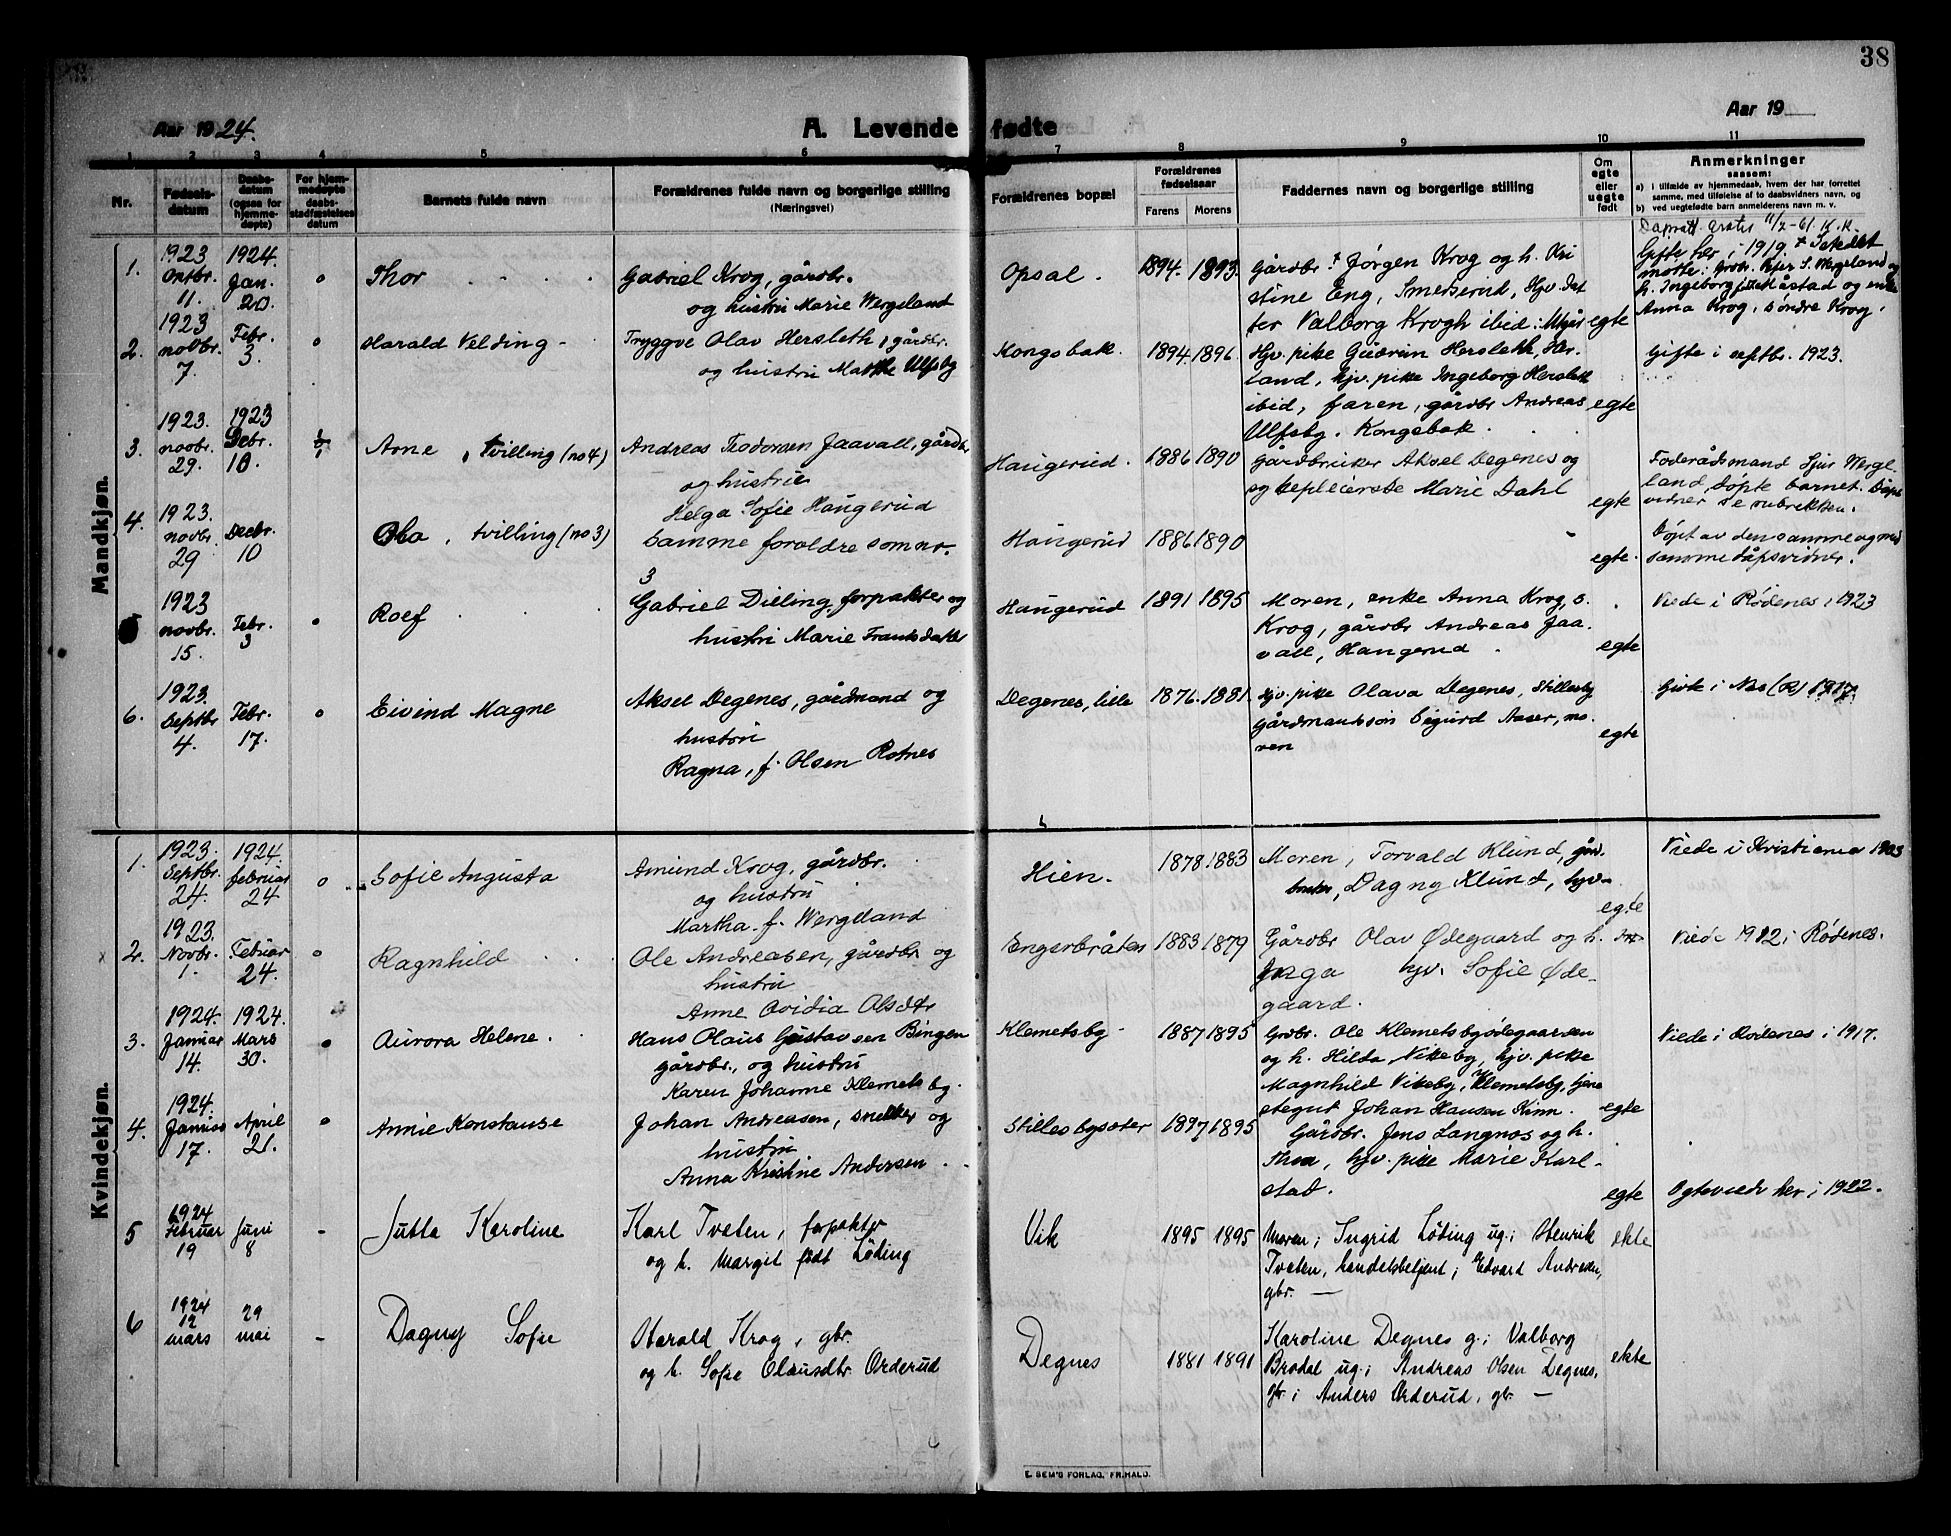 38
Aar 1924.
A. Levende fødte
Aar 19
1 2 3 4 5 6 7 8 9 10 11
Nr.
Fødsels-
datum
Daabs-
datum
(ogsaa for
hjemme-
døpte)
For hjem-
medøpte
daabs-
stadfæstelses
datum
Barnets fulde navn
Forældrenes fulde navn og borgerlige stilling
(Næringsvei)
Forældrenes bopæl
Forældrenes
fødselsaar
Farens Morens
Faddernes navn og borgerlige stilling
Om
egte
eller
uegte
født
Anmerkninger
saasom:
a) i tilfælde av hjemmedaab, hvem der har forrettet
samme, med tilføielse af to daabsvidners navn, og
b) ved uegtefødte barn anmelderens navn m. v.
Mandkjøn.
1.
1923
Oktbr.
11.
1924.
Jan.
20.
Thor
Gabriel Krog, gårdbr.
og hustru Marie Wergeland
Opsal.
1894. 1893.
Gårdbr. Jørgen Krog og h. Kri
stine Eng, Smedserud, Hjv. dat
ter Valborg Krogh ibid:
egte
Dapsatt. gratis 11/7-61. K.K.
Gifte her i 1919
h. Ingeborg Måstad og enke
Anna Krog, søndre Krog.
2.
1923
novbr.
7.
Febr.
3
Harald Velding
Tryggve Olav Hersleth, gårdbr.
og hustru Marthe Ulfsby
Kongsbak.
1894. 1896.
Hjv. pike Gudrun Hersleth, Hær
land, hjv. pike Ingeborg Hersleth
ibid, faren, gårdbr Andreas
Ulfsby. Kongsbak.
egte
Gifte i septbr. 1923.
3.
1923.
novbr.
29.
1923
Debr.
10.
Arne, tvilling (no 4)
Andreas Teodorsen Jaavall, gårdbr
og hustru
Helga Sofie Haugerud
Haugerud.
1886 1890
Gårdbruker Aksel Degenes og
sykepleierske Marie Dahl
egte
Føderådsmand Sjur Werge-
land, døpte barnet. Dåps
vidner se rubrikken.
4.
1923.
novbr.
29
Decbr.
10
Ola, tvilling (no 3)
Samme foreldre som nr.
3
Haugerud
1886 1890
egte.
Døpt av den samme og med
samme dåpsvidner.
1923
novbr.
15.
Febr.
3
Rolf
Gabriel Dieling, forpakter og
hustru Marie Fransdatter
Haugerud
1891 1895
Moren, enke Anna Krog, s.
Krog, gårdbr Andreas Jaa-
vall, Haugerud.
egte
Viede i Rødenes i 1923
6.
1923.
Septbr
4.
Febr.
17.
Eivind Magne
Aksel Degenes, gårdmand og
hustru
Ragna, f. Olsen Rotnes
Degenes, lille
1876. 1881.
Hjv. pike Olava Degenes, Stillesby
gårdmandssøn Sigurd Aaser, mo-
ren
egte
Givte i Nes (R) 1917.
Kvindekjøn.
1.
1923.
Septbr.
24.
1924.
februar
24
Sofie Augusta
Amund Krog, gårdbr.
og hustru
Martha f. Wergeland
Hien.
1878 1883
Moren, Torvald Klund, gård
bruker, Dagny Klund, hjv.
egte
Viede i Kristiania 1903
2.
1923.
Novbr.
1.
Februar
24.
Ragnhild
Ole Andreasen, gårdbr og
hustru
Anne Ovidia Olsdtr
Engerbråten
1883 1879
Gårdbr Olav Ødegaard og h.
Inga hjv. Sofie Øde-
gaard.
Viede 1912 i Rødenes.
3.
1924.
Januar
14.
1924.
Mars
30.
Aurora Helene.
Hans Olaus Gustavsen Bingen
gårdbr., og hustru
Karen Johanne Klemetsby.
Klemetsby
1887 1895
Grdbr. Ole Klemetsbyødegaarden
og h. Hilda Vikeby, hjv. pike
Magnhild Vikeby, Klemetsby, tjene
stegut Johan Hansen Kinn.
egte
Viede i Rødenes i 1917.
4.
1924.
Januar
17.
April
21.
Annie Konstanse
Johan Andreasen, snekker og
hustru
Anna Kristine Andersen.
Stillesbysæter
1897 1895
Gårdbr. Jens Langnes og h.
Thea, hjv. pike Marie Karl-
stad.
egte
Ogteviede her i 1922.
5
1924
Februar
19
Juni
8
Jutta Karoline
Karl Tveten, forpakter
og h. Margit født Løding
Vik
1895 1895
Moren; Ingrid Løding ug.; Henrik
Tveten, handelsbetjent; Edvard Andresen,
gbr. —
ekte
6
1924
12
mars
29
mai
Dagny Sofie
Harald Krog, gbr.
og h. Sofie Olausdtr. Orderud
Degnes
1881 1891
Karoline Degnes g.; Valborg
Brodal ug.; Andreas Olsen Degnes,
gbr; Anders Orderud, gbr. —
ekte
E. SEM'S FORLAG, FR.HALD.